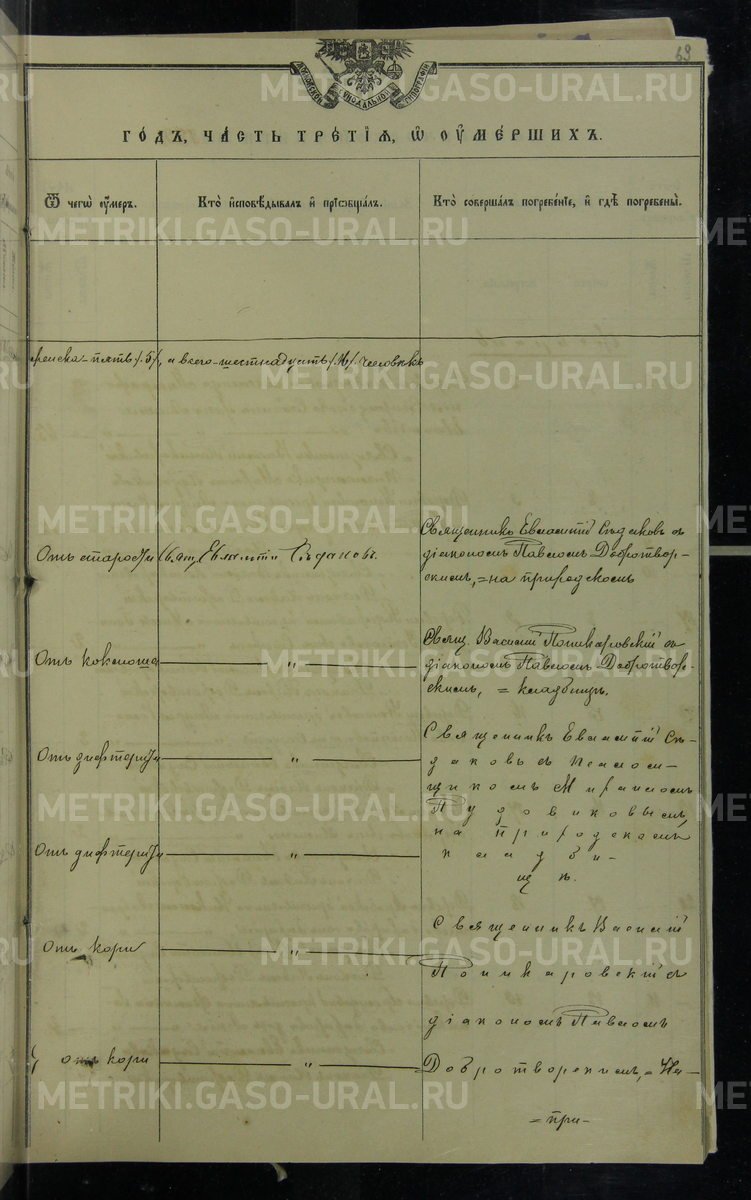 69
МОСКОВСКОЙ СѴНОДАЛЬНОЙ ТИПОГРАФІИ
ГО́ДЪ, ЧА́СТЬ ТРЕ́ТІѦ, Ѡ҆ ОУ҆МЕ́РШИХЪ.
Ѿ чегѡ̀ оу҆́меръ.
Кто̀ и҆сповѣ́дывалъ и҆ прїѡбща́лъ.
Кто̀ соверша́лъ погребе́нїе, и҆ гдѣ̀ погребены̀.
женска - пять /5/, а всего - шестнадцать /16/ человѣкъ
Отъ старости
Свящ. Евламтій Сѣдаковъ
Священникъ Евламтій Сѣдаковъ съ
діакономъ Павломъ Добротвор-
скимъ, = на приходскомъ
Отъ коклюша
"
Свящ. Василій съ
діакономъ Павломъ Добротвор-
скимъ, = кладбищѣ.
Отъ дифтерита
"
Священникъ Евламтій Сѣ-
даковъ съ псалом-
щикомъ
на приходскомъ
кладби-
щѣ.
Отъ дифтерита
"
Отъ кори
"
Священникъ Василій
съ
діакономъ Павломъ
отъ кори
"
Добротворскимъ, = На
= при-
METRIKI.GASO-URAL.RU